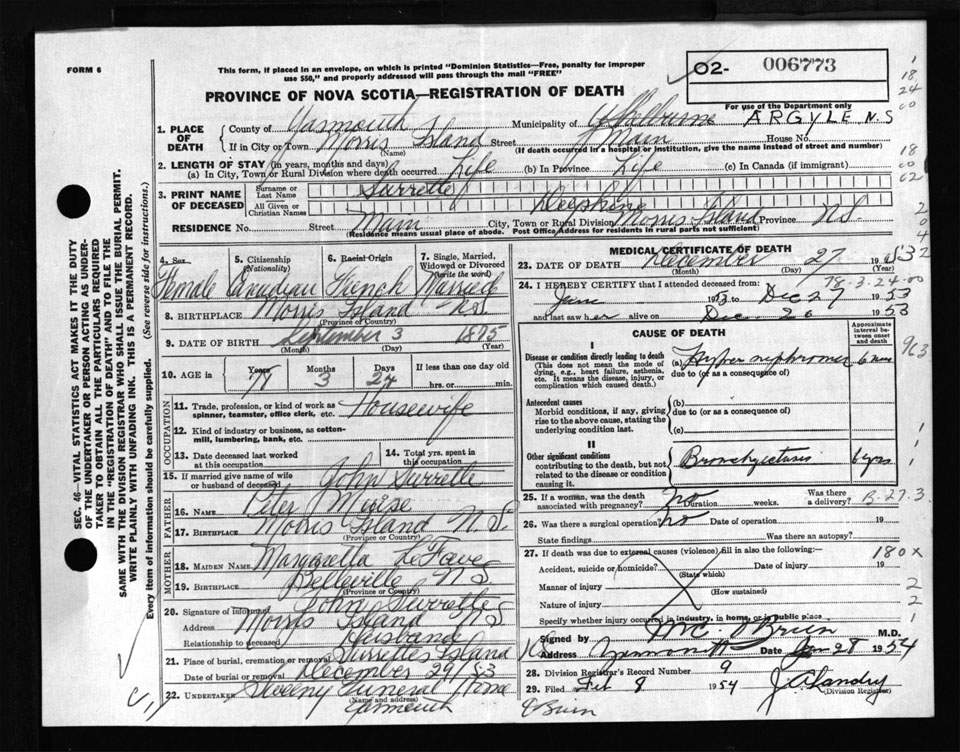 FORM 6
This form, if placed in an envelope, on which is printed "Dominion Statistics—Free, penalty for improper
use $50," and properly addressed will pass through the mail "FREE"
O2- 006773
PROVINCE OF NOVA SCOTIA—REGISTRATION OF DEATH
For use of the Department only
ARGYLE N.S
1. PLACE OF DEATH
County of Yarmouth Municipality of Shelburne
If in City or Town Morris Island Street Main House No.
(Name) (If death occurred in a hospital or institution, give the name instead of street and number)
2. LENGTH OF STAY (in years, months and days)
(a) In City, Town or Rural Division where death occurred Life (b) In Province Life (c) In Canada (if immigrant)
3. PRINT NAME OF DECEASED
Surname or Last Name Surrette
All Given or Christian Names
RESIDENCE No. Street Main City, Town or Rural Division Morris Island Province N.S.
(Residence means usual place of abode. Post Office Address for residents in rural parts not sufficient)
4. Sex Female
5. Citizenship (Nationality) Canadian
6. Racial Origin French
7. Single, Married, Widowed or Divorced (write the word) Married
8. BIRTHPLACE Morris Island N.S.
(Province or Country)
9. DATE OF BIRTH September 3 1875
(Month) (Day) (Year)
10. AGE in Years Months 3 Days 24 If less than one day old hrs. or min.
OCCUPATION
11. Trade, profession, or kind of work as spinner, teamster, office clerk, etc. Housewife
12. Kind of industry or business, as cotton-mill, lumbering, bank, etc.
13. Date deceased last worked at this occupation
14. Total yrs. spent in this occupation
15. If married give name of wife or husband of deceased John Surrette
FATHER
16. Name Peter Muise
17. Birthplace Morris Island N.S.
(Province or Country)
MOTHER
18. Maiden Name Margaretta LeFave
19. Birthplace Belleville N.S.
(Province or Country)
20. Signature of informant John Surrette
Address Morris Island N.S.
Relationship to deceased Husband
21. Place of burial, cremation or removal Surrettes Island
Date of burial or removal December 29/53
22. Undertaker Sweeny Funeral Home
(Name and address)
Yarmouth
MEDICAL CERTIFICATE OF DEATH
23. DATE OF DEATH December 27 19
(Month) (Day) (Year)
24. I HEREBY CERTIFY that I attended deceased from:
June 1953 to Dec 27 1953
and last saw her alive on Dec. 26 1953
CAUSE OF DEATH
Approximate interval between onset and death
I
Disease or condition directly leading to death
(This does not mean the mode of dying, e.g., heart failure, asthenia, etc. It means the disease, injury, or complication which caused death.)
(a) Hypernephroma 6 mos
due to (or as a consequence of)
Antecedent causes
Morbid conditions, if any, giving rise to the above cause, stating the underlying condition last.
(b)
due to (or as a consequence of)
(c)
II
Other significant conditions
contributing to the death, but not related to the disease or condition causing it.
Bronchyectasis 6 yrs
25. If a woman, was the death associated with pregnancy? no Duration weeks. Was there a delivery?
26. Was there a surgical operation? no Date of operation 19
State findings Was there an autopsy?
27. If death was due to external causes (violence) fill in also the following:
Accident, suicide or homicide? Date of injury 19
(State which)
Manner of injury
(How sustained)
Nature of injury
Specify whether injury occurred in industry, in home, or in public place
Signed by M.C. O'Brien M.D.
Address Date Jan 28 1954
28. Division Registrar's Record Number 9
29. Filed Feb 8 1954 J A Landry
Division Registrar
O'Brien
180X
SEC. 46—VITAL STATISTICS ACT MAKES IT THE DUTY
OF THE UNDERTAKER OR PERSON ACTING AS UNDER-
TAKER TO OBTAIN ALL THE PARTICULARS REQUIRED
IN THE "REGISTRATION OF DEATH" AND TO FILE THE
SAME WITH THE DIVISION REGISTRAR WHO SHALL ISSUE THE BURIAL PERMIT.
WRITE PLAINLY WITH UNFADING INK. THIS IS A PERMANENT RECORD.
Every item of information should be carefully supplied. (See reverse side for instructions.)